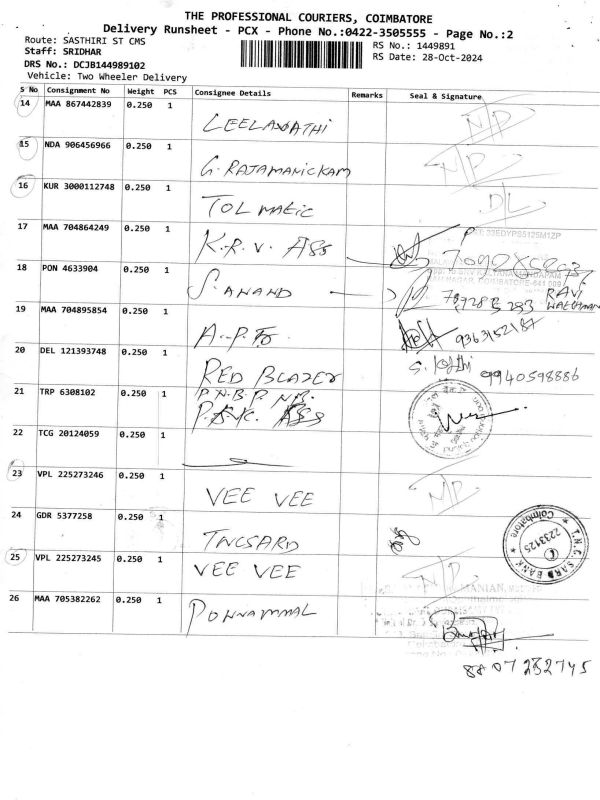 THE PROFESSIONAL COURIERS, COIMBATORE
Delivery Runsheet - PCX - Phone No.:0422-3505555 - Page No.:2
Route: SASTHIRI ST CMS
RS No.: 1449891
Staff: SRIDHAR
RS Date: 28-Oct-2024
DRS No.: DCJB144989102
Vehicle: Two Wheeler Delivery
S No Consignment No Weight PCS Consignee Details Remarks Seal & Signature
14 MAA 867442839 0.250 1 LEELAVATHI ND
15 NDA 906456966 0.250 1 G. RAJAMANICKAM ND
16 KUR 3000112748 0.250 1 TOLMATIC DL
17 MAA 704864249 0.250 1 K.R.V. ASS
33EDYPS5125M1ZP
18 PON 4633904 0.250 1 S. ANAND RAVI
WATCHMAN
COIMBATORE-641 009
19 MAA 704895854 0.250 1 9363152187
20 DEL 121393748 0.250 1 RED BLAZER 9940598886
21 TRP 6308102 0.250 1 P.N.B. P.N.B.
ASS
22 TCG 20124059 0.250 1
23 VPL 225273246 0.250 1 VEE VEE ND
24 GDR 5377258 0.250 1 TNCSARD
T.N.C. SARD BANK
Coimbatore
2233125
25 VPL 225273245 0.250 1 VEE VEE ND
26 MAA 705382262 0.250 1 PONNAMMAL
8807232745